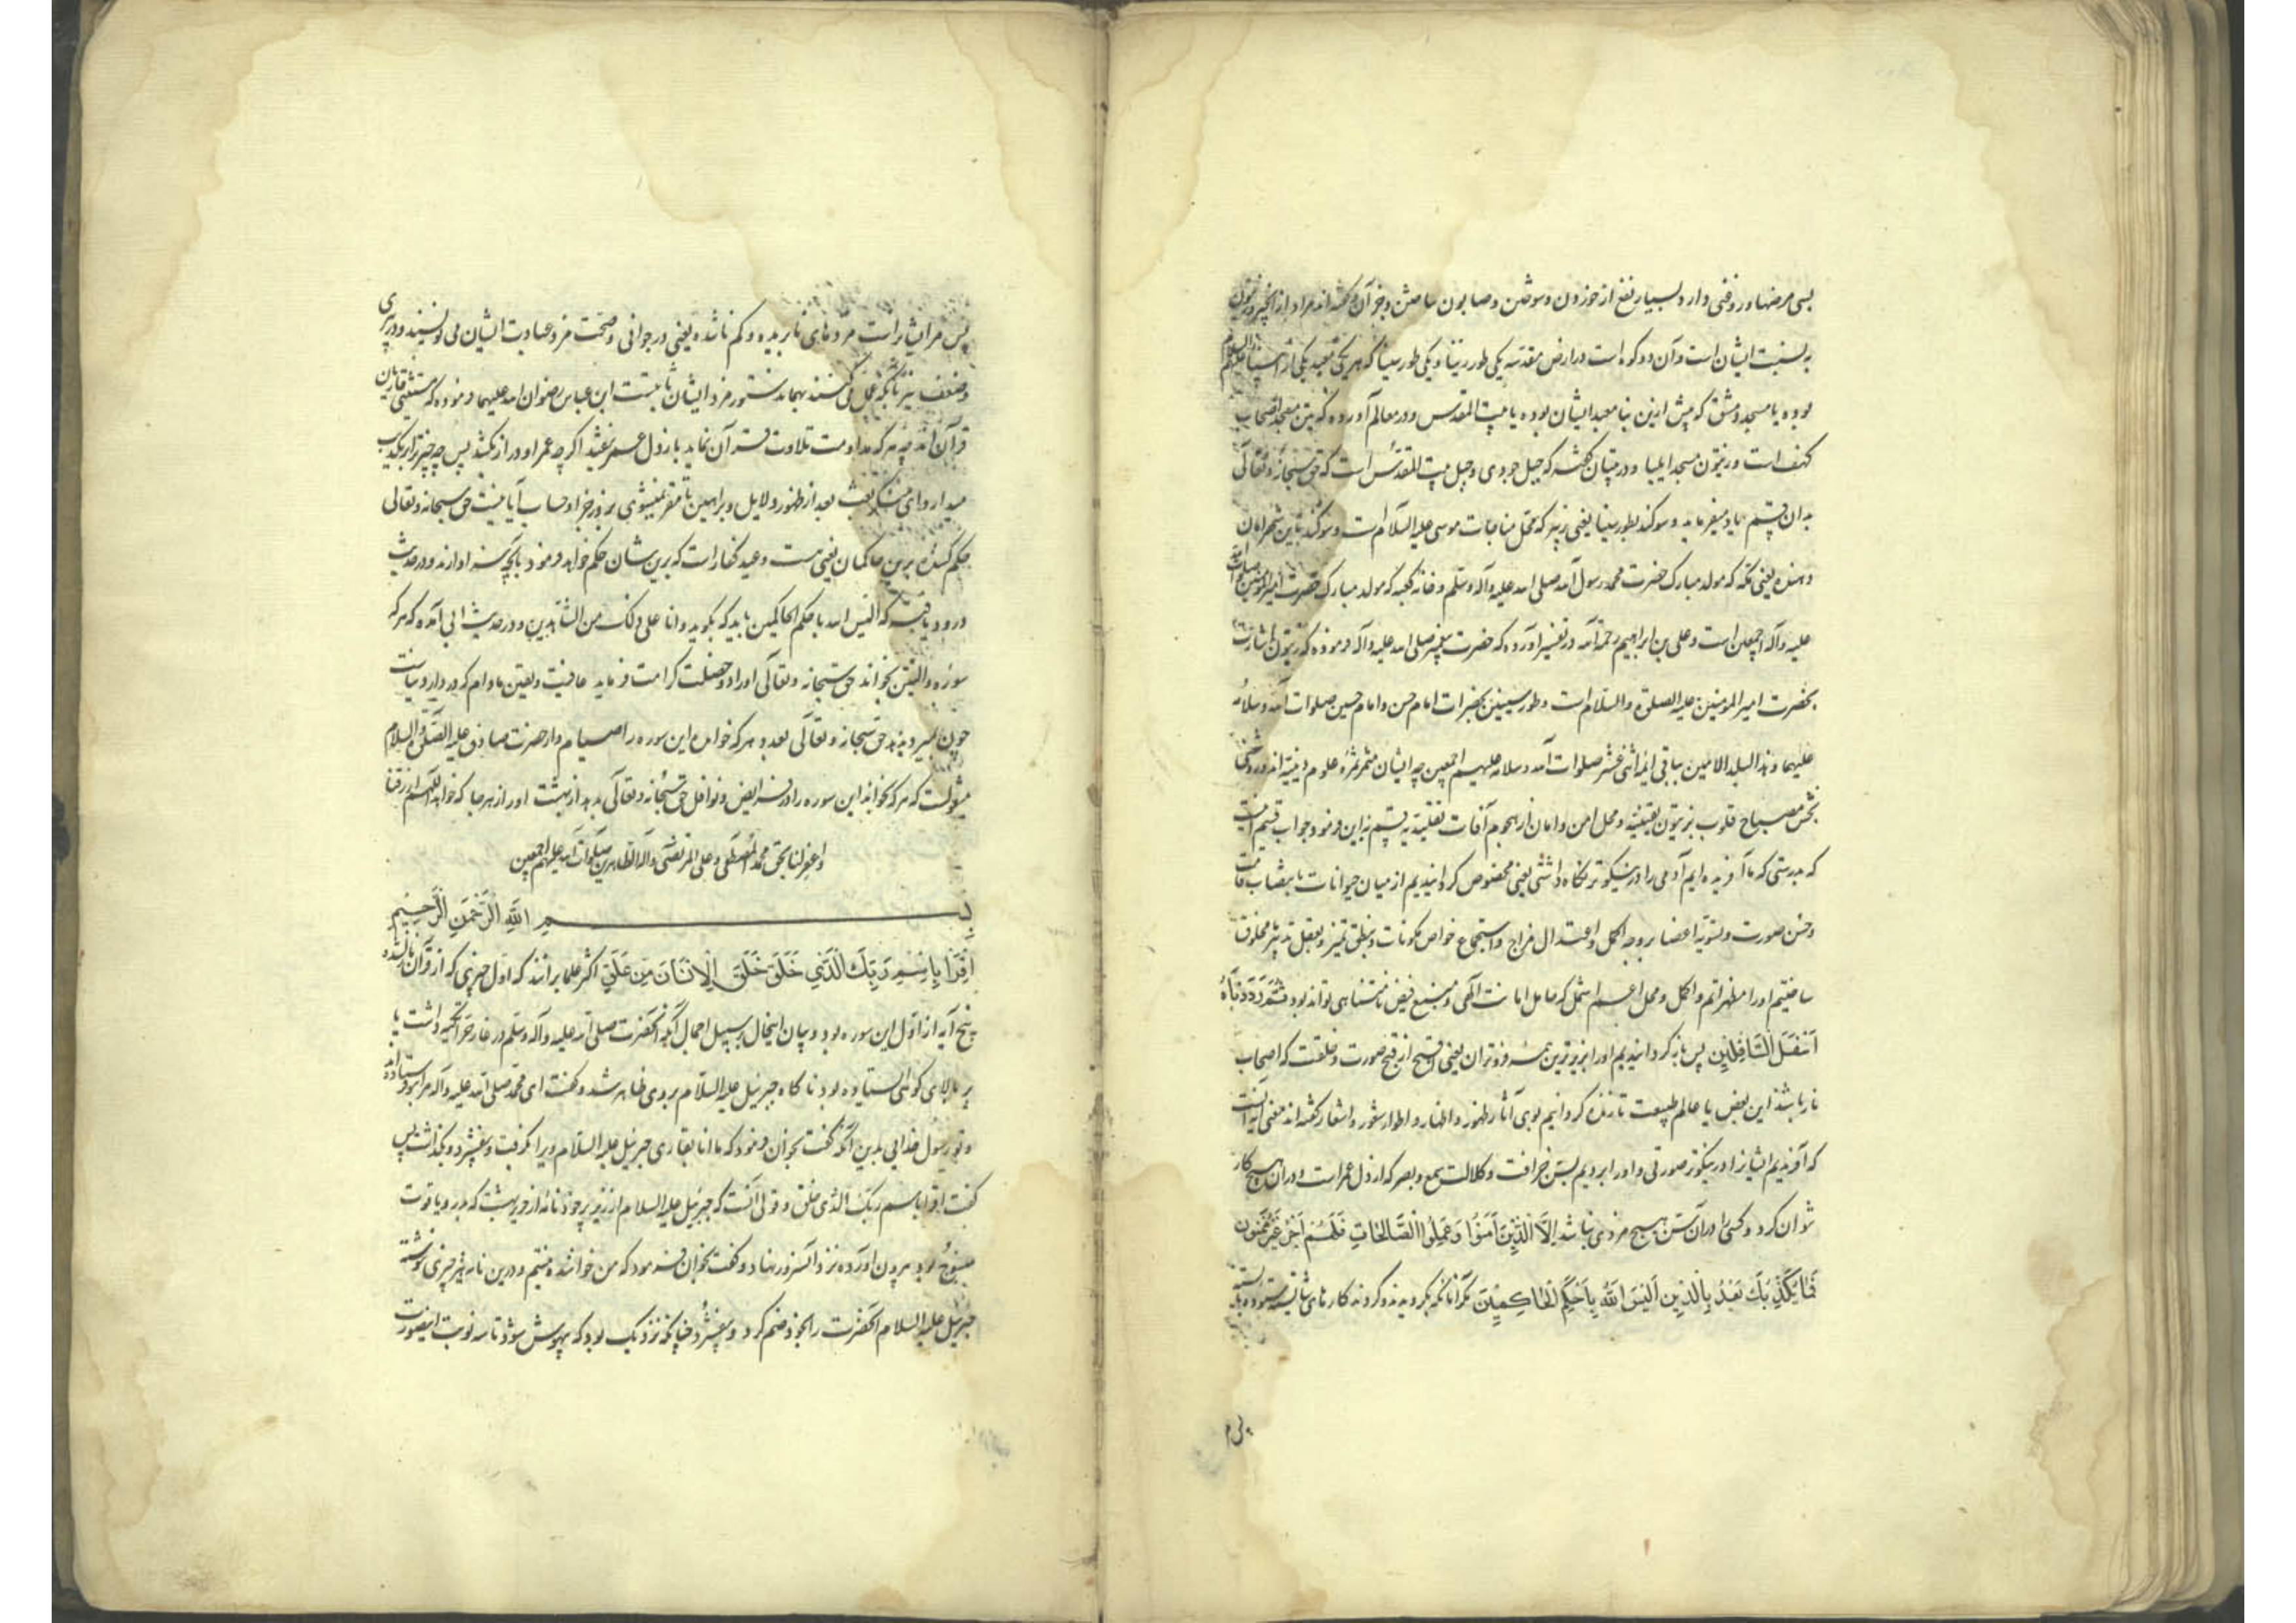 بسی مرضها و روغنی دارد بسیار نفع از خوردن و سوختن و صابون ساختن و جز آن و گفته‌اند مراد از انجیر و زیتون
به نسبت ایشان است و آن دو کوه است در ارض مقدسه یکی طور زیتا و یکی طور سینا که هر یکی معبد یکی از انبیا علیهم السلام
بوده یا مسجد دمشق که پیش ازین بنا معبد ایشان بوده یا بیت المقدس و در معالم آورده که تین مسجد اصحاب
کهف است و زیتون مسجد ایلیا و در تبیان گفته که جبل جودی و جبل بیت المقدس است که حق سبحانه و تعالی
بدان قسم یاد میفرماید و سوگند بطور سینا یعنی زبیر که محل مناجات موسی علیه السلام است و سوگند باین شهر امان
دهنده یعنی مکه که مولد مبارک حضرت محمد رسول الله صلی الله علیه و آله و سلم و خانه کعبه که مولد مبارک حضرت امیر المؤمنین صلوات الله
علیه و آله اجمعین است و علی بن ابراهیم رحمه الله در تفسیر آورده که حضرت پیغمبر صلی الله علیه و آله فرموده که زیتون اشارت
بحضرت امیر المومنین علیه الصلوة و السلام است و طور سینین بحضرات امام حسن و امام حسین صلوات الله و سلامه
علیهما و هذا البلد الامین بباقی ائمه اثنی عشر صلوات الله و سلامه علیهم اجمعین چه ایشان مثمر ثمره علوم دینیه‌اند و روشنی
بخش مصباح قلوب بزیتون یقینیه و محل امن و امان از هجوم آفات نقلیه قسم به این فرمود و جواب قسم اینست
که بدرستی که ما آفریده‌ایم آدمی را در نیکوتر نگاه داشتی یعنی مخصوص گردانیدیم از میان حیوانات بانتصاب قامت
و حسن صورت و تسویه اعضا بر وجه اکمل و اعتدال مزاج و استجماع خواص مکونات و بنطق و تمیز و بعقل و تدبیر مخلوق
ساختیم او را مظهر اتم و اکمل و محل اعم اشمل که حامل امانت الهی و منبع فیض نامتناهی تواند بود ثُمَّ رَدَدْنَاهُ
اَسْفَلَ السَّافِلِینَ پس باز گردانیدیم او را بزیرترین همه فروتران یعنی اقبح از قبح صورت و خلقت که اصحاب
نار باشند این بعض یا عالم طبیعت تا زنده گردانیم بوی آثار ظهور و اظهار و اطوار شعور و اشعار گفته‌اند معنی آیه آنست
که آفریدیم ایشانرا در نیکوتر صورتی و او را بردیم بسن خرافت و کلالت سمع و بصر که ارذل عمر است و در آن هیچ کار
نتوان کرد و کسی را در آن سن هیچ مزدی نباشد اِلَّا الَّذِینَ آمَنُوا وَعَمِلُوا الصَّالِحَاتِ فَلَهُمْ اَجْرٌ غَیْرُ مَمْنُونٍ
فَمَا یُکَذِّبُکَ بَعْدُ بِالدِّینِ اَلَیْسَ اللهُ بِاَحْکَمِ الْحَاکِمِینَ مگر آنانکه بگرویدند و کردند کارهای شایسته ستوده
پس م
پس مر ایشانراست مزدهای نابریده و کم ناشده یعنی در جوانی و صحت مزد عبادت ایشان می نویسند و در پیری
و ضعف نیز بآنکه عمل نمی کنند بهمان دستور مزد ایشان ثابتست ابن عباس رضوان الله علیهما فرموده که مستثنی قاریان
قرآن‌اند چه هر که مداومت تلاوت قرآن نماید بارذل عمر نرسد اگر چه عمر او دراز بکشد پس چه چیز ترا بر تکذیب
میدارد ای منکر بعث بعد از ظهور دلایل و براهین تا مقر نمیشوی بروز جزا و حساب آیا نیست حق سبحانه و تعالی
حکم کننده برین حاکمان یعنی هست و عید کفار است که برین شان حکم خواهد فرمود بآنچه سزاوارند و در حدیث
درود یافته که الیس الله باحکم الحاکمین باید که بگوید و انا علی ذلک من الشاهدین و در حدیث ابی آمده که هر که
سوره والتین بخواند حق سبحانه و تعالی او را دو خصلت کرامت فرماید عافیت و یقین مادام که در دار دنیاست
چون بمیرد بدهد حق سبحانه و تعالی بعدد هر که خوانده این سوره را صیام و از حضرت صادق علیه الصلوة و السلام
منقولست که هر که بخواند این سوره را در فرایض و نوافل حق سبحانه و تعالی بدهد از بهشت او را از هر جا که خواهد اللهم ارزقنا
واغفر لنا بحق محمد المصطفی و علی المرتضی و آله الطاهرین صلوات الله علیهم اجمعین
بِسمِ اللهِ الرَّحْمٰنِ الرَّحِیمِ
اِقْرَأْ بِاسْمِ رَبِّکَ الَّذِی خَلَقَ خَلَقَ الْاِنْسَانَ مِنْ عَلَقٍ اکثر علما برانند که اول چیزی که از قرآن نازل شده
پنج آیه از اول این سوره بود و بیان اینحال بر سبیل اجمال آنکه آنحضرت صلی الله علیه و آله و سلم در غار حرا تکیه داشت یا
بر بالای کوهی ایستاده بود ناگاه جبرئیل علیه السلام بروی ظاهر شد و گفت ای محمد صلی الله علیه و آله مرا بتو فرستاده
و تو رسول خدایی بدین آنگه گفت بخوان فرمود که ما انا بقاری جبرئیل علیه السلام ویرا بگرفت و بفشرد و بگذاشت پس
گفت اقرا باسم ربک الذی خلق و قولی آنست که جبرئیل علیه السلام از زیر پر خود نامه از حریر بهشت که بدر و یاقوت
منسوج بود بیرون آورده نزد آنسرور نهاد و گفت بخوان فرمود که من خواننده نیستم و درین نامه نیز چیزی نوشته
جبرئیل علیه السلام آنحضرت را بخود ضم کرد و بیفشرد چنانکه نزدیک بود که بیهوش شود تا سه نوبت اینصورت